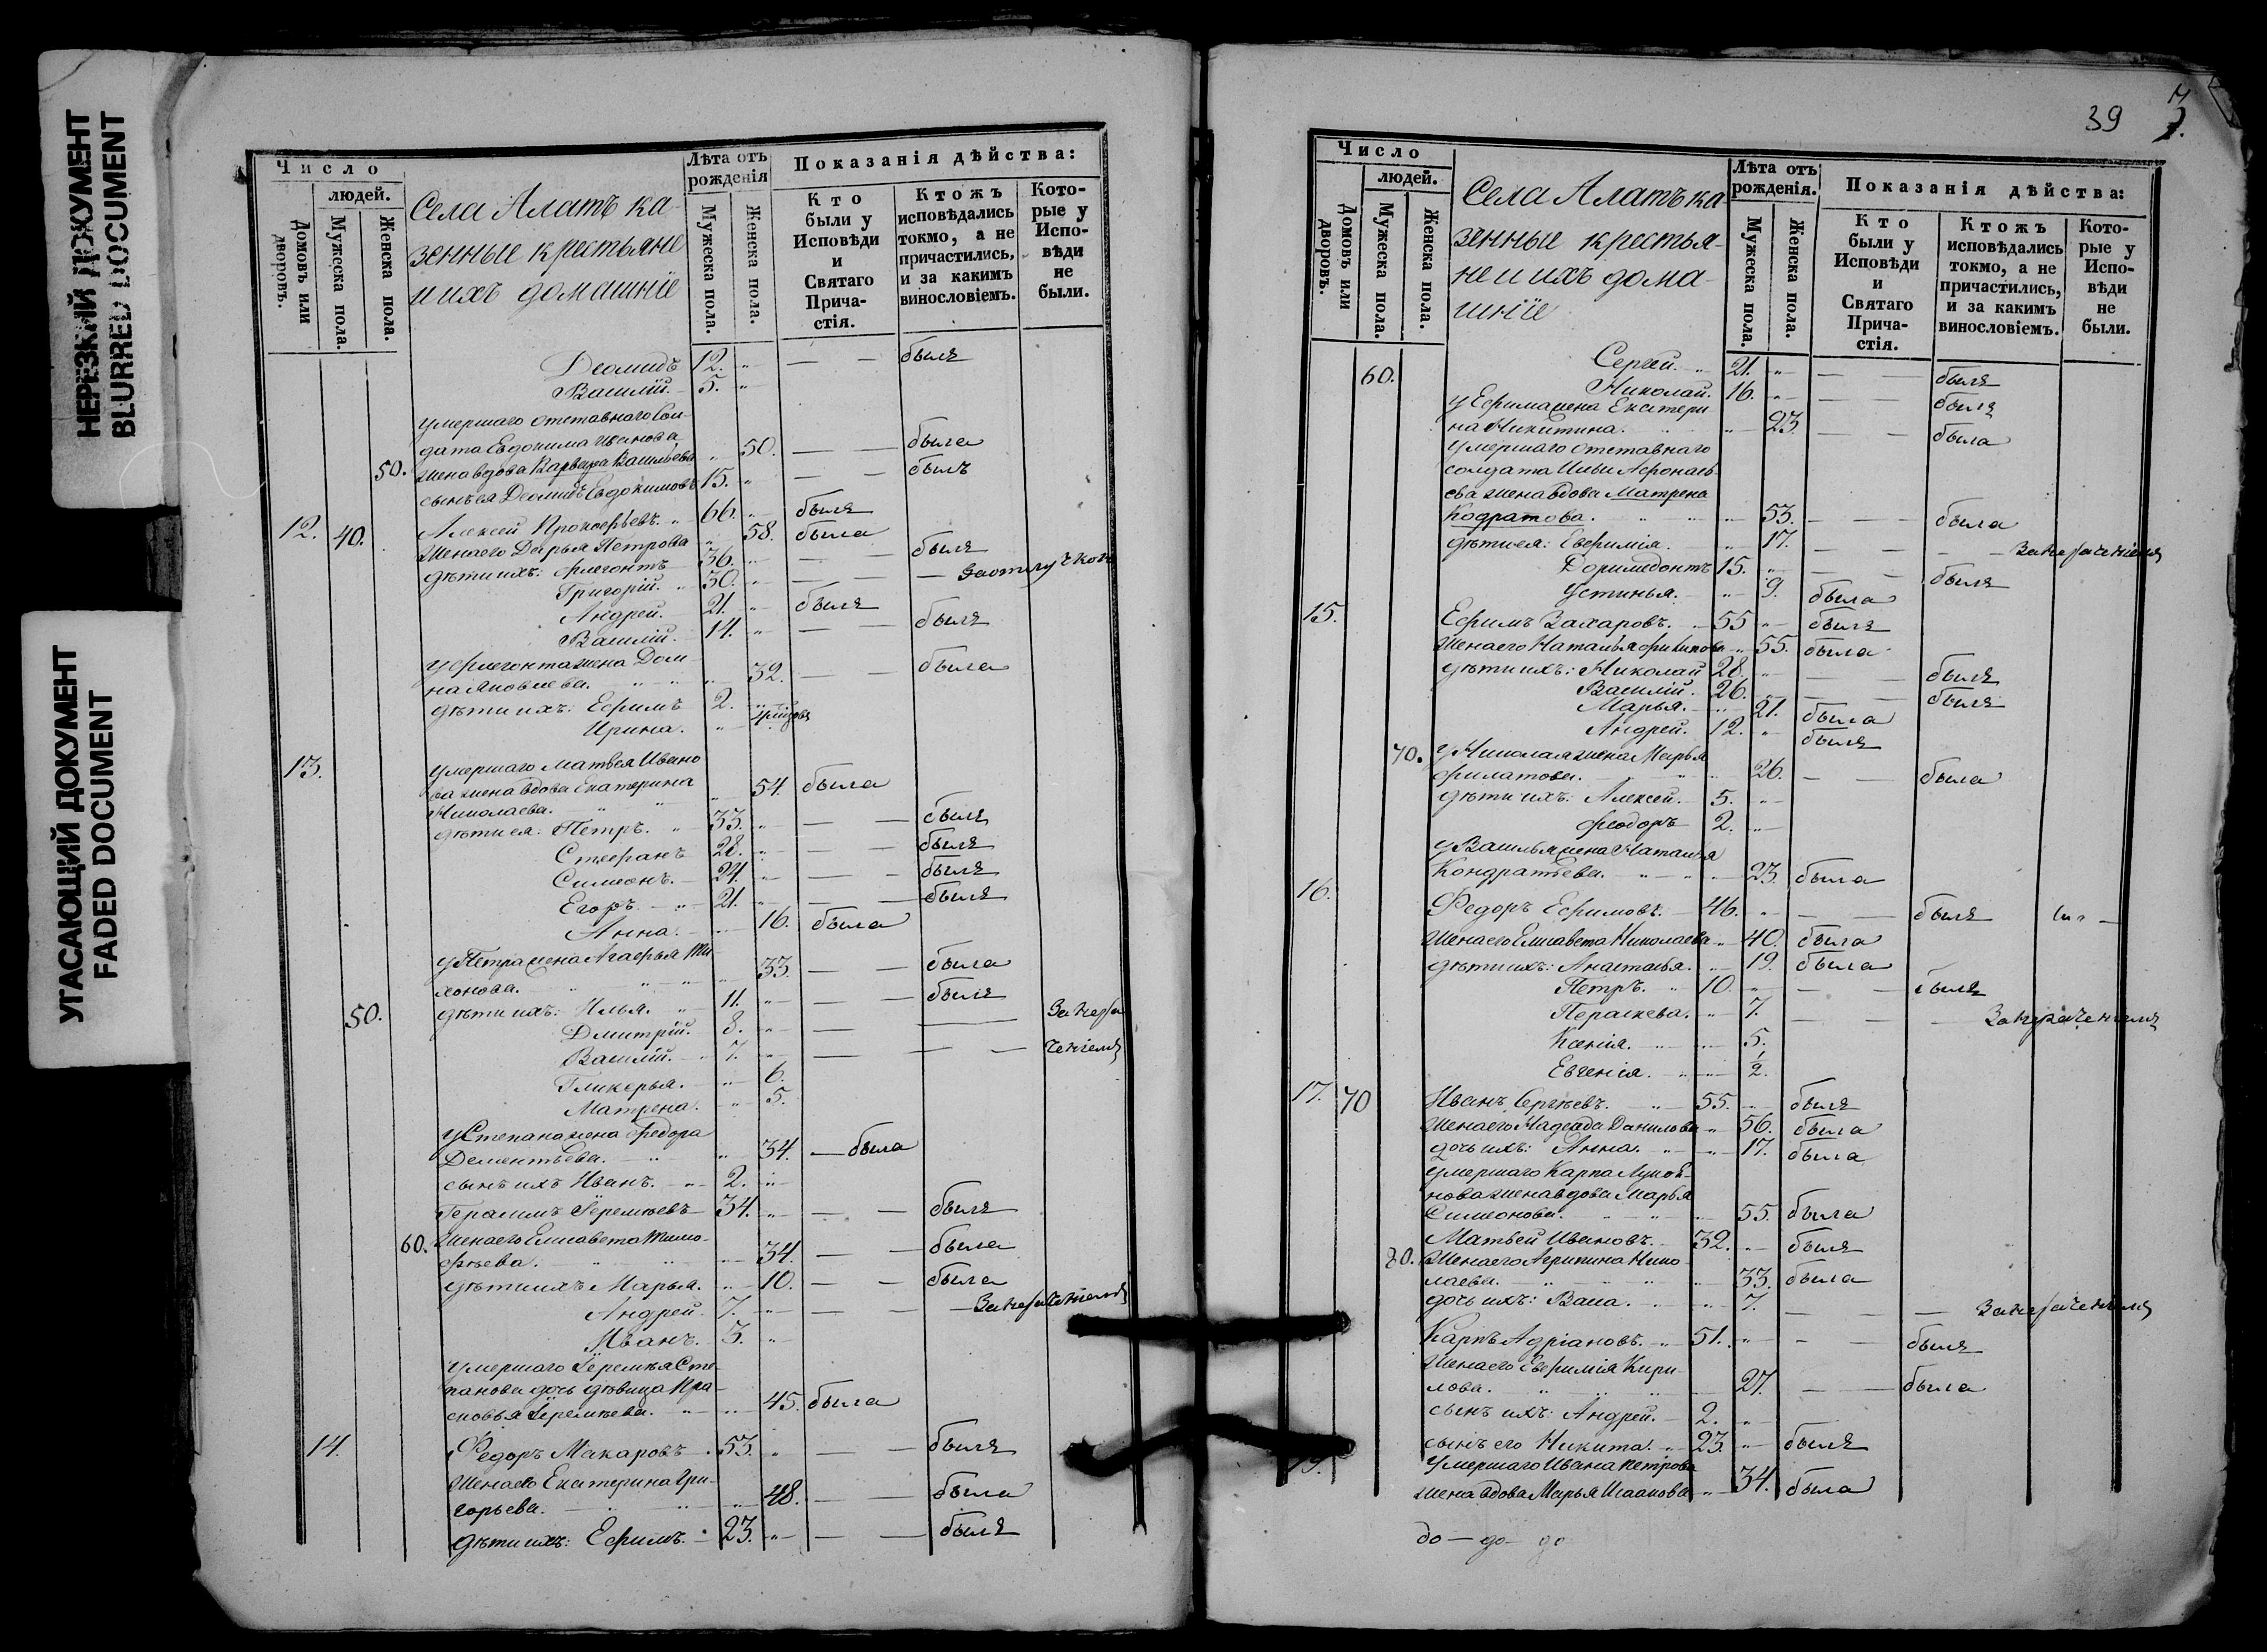 НЕРЕЗКИЙ ДОКУМЕНТ
BLURRED DOCUMENT
УГАСАЮЩИЙ ДОКУМЕНТ
FADED DOCUMENT
Число
людей.
Домовъ или дворовъ.
Мужеска пола.
Женска пола.
Села Алатъ ка-
зенные крестьяне
и ихъ домашніе
Лѣта отъ рожденія
Мужеска пола.
Женска пола.
Показанія дѣйства:
Кто были у Исповѣди и Святаго Прича-стія.
Ктожъ исповѣдались токмо, а не причастились, и за какимъ винословіемъ.
Кото-рые у Испо-вѣди не были.
Деомидъ 12. „ — — былъ
Василій. 5. „
Умершаго отставнаго Сол-
дата Евдокима Иванова
50. жена вдова Варвара Васильева „ 50. — — была
сынъ ея Деомидъ Евдокимовъ 15. „ — — былъ
12. 40. Алексей Прокофьевъ. „ 66. „ былъ
Жена его Дарья Петрова „ 58. была
дѣти ихъ: Флегонтъ 36. „ — — былъ
Григорій. „ 30. „ — — — За отлучкою
Андрей. 21. „ былъ
Василій. 14. „ — — былъ
У Флегонта жена Дом-
на Яковлева. „ „ 32. — — была
дѣти ихъ: Ефимъ 2. „
Ирина. „
13. Умершаго Матвея Ивано
ва жена вдова Екатерина
Николаева. „ „ „ 54. была
дѣти ея: Петръ. „ 33. „ — — былъ
Стефанъ 28. „ — — былъ
Симеонъ. 24. „ — — былъ
Егоръ. „ 21. „ — — былъ
Анна. „ 16. была
У Петра жена Агафья Ти-
хонова. „ „ „ 33. — — была
50. дѣти ихъ: Илья. „ 11. „ — — былъ
Дмитрій. 8. „ — — За нера
Василій. 7. „ — — — ченіемъ
Гликерья. „ 6.
Матрена. „ 5.
У Степана жена Федора
Дементьева. „ „ 34. — была
сынъ ихъ Иванъ. „ 2. „
Герасимъ Ереміевъ 34. „ — — былъ
60. Жена его Елисавета Тимо-
феева. „ „ „ 34. — — была
дѣти ихъ Марья. „ 10. — — была
Андрей. 7. „ — — — За нераченіемъ
Иванъ. 3. „
Умершаго Еремея Сте-
панова дочь дѣвица Пра-
сковья Еремѣева. „ „ 45. была
14. Федоръ Макаровъ. 53. „ — — былъ
Жена его Екатерина Гри-
горьева. „ „ „ 48. — — была
дѣти ихъ: Ефимъ. 23. „ — — былъ
39
Число
людей.
Домовъ или дворовъ.
Мужеска пола.
Женска пола.
Села Алатъ ка
зенные крестья-
не и ихъ дома-
шніе
Лѣта отъ рожденія.
Мужеска пола.
Женска пола.
Показанія дѣйства:
Кто были у Исповѣди и Святаго Прича-стія.
Ктожъ исповѣдались токмо, а не причастились, и за какимъ винословіемъ.
Кото-рые у Испо-вѣди не были.
Сергей. „ 21. „ — — былъ
60. Николай. 16. „ — — былъ
У Ефима жена Екатери
на Никитина. „ 23. — — была
Умершаго отставнаго
солдата Ильи Афонась
ева жена вдова Матрена
Кодратова. „ „ „ 53. — — была
дѣти ея: Евфимія. „ 17. — — — За нераченіемъ
Доримедонтъ 15. „ — — былъ
Устинья. „ 9. была
15. Ефимъ Захаровъ. 55 „ былъ
Жена его Наталья Филипова „ 55. была
дѣти ихъ: Николай 28. „ — — былъ
Василій. 26. „ — — былъ
Марья. „ 21. была
Андрей. 12. „ былъ
70. У Николая жена Марья
Филатова. „ „ 26. — — была
дѣти ихъ: Алексей. 5. „
Феодоръ 2. „
У Василья жена Наталья
Кондратьева. „ „ 23. была
16. Федоръ Ефимовъ. 46. „ — — былъ
Жена его Елисавета Николаева „ 40. была
дѣти ихъ: Анастасья. „ 19. была
Петръ. „ 10. „ — — былъ
Параскева. „ 7. — — — За нераченіемъ
Ксенія. „ „ 5.
Евгенія. „ „ 1/2.
17. 70 Иванъ Сергѣевъ. „ 55. „ былъ
Жена его Надежда Данилова „ 56. была
дочь ихъ: Анна. „ „ 17. была
Умершаго Карпа
нова жена вдова Марья
Симеонова. „ „ 55. была
Матвей Ивановъ. 32. „ былъ
80. Жена его Агрипина Нико
лаева. „ „ „ 33. была
дочь ихъ: Васа. „ „ 7. — — — За нераченіемъ
Карпъ Адріановъ. „ 51. „ — — былъ
Жена его Евфимія Кири
лова. „ „ „ 27. — — была
сынъ ихъ: Андрей. 2. „
сынъ его Никита. „ 23. „ былъ
19. Умершаго Ивана Петрова
жена вдова Марья Исаакова „ 34. была